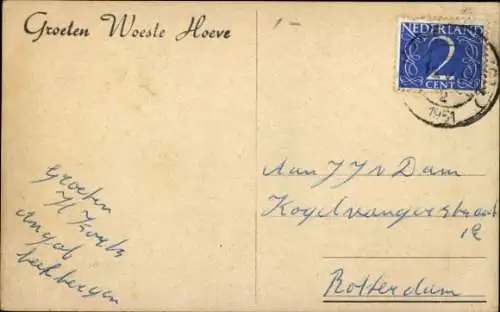 Groeten Woeste Hoeve
1-
NEDERLAND
2
CENT
2
1951
Aan J J v Dam
Kogelvangerstraat
12
Rotterdam
Groeten
beekbergen